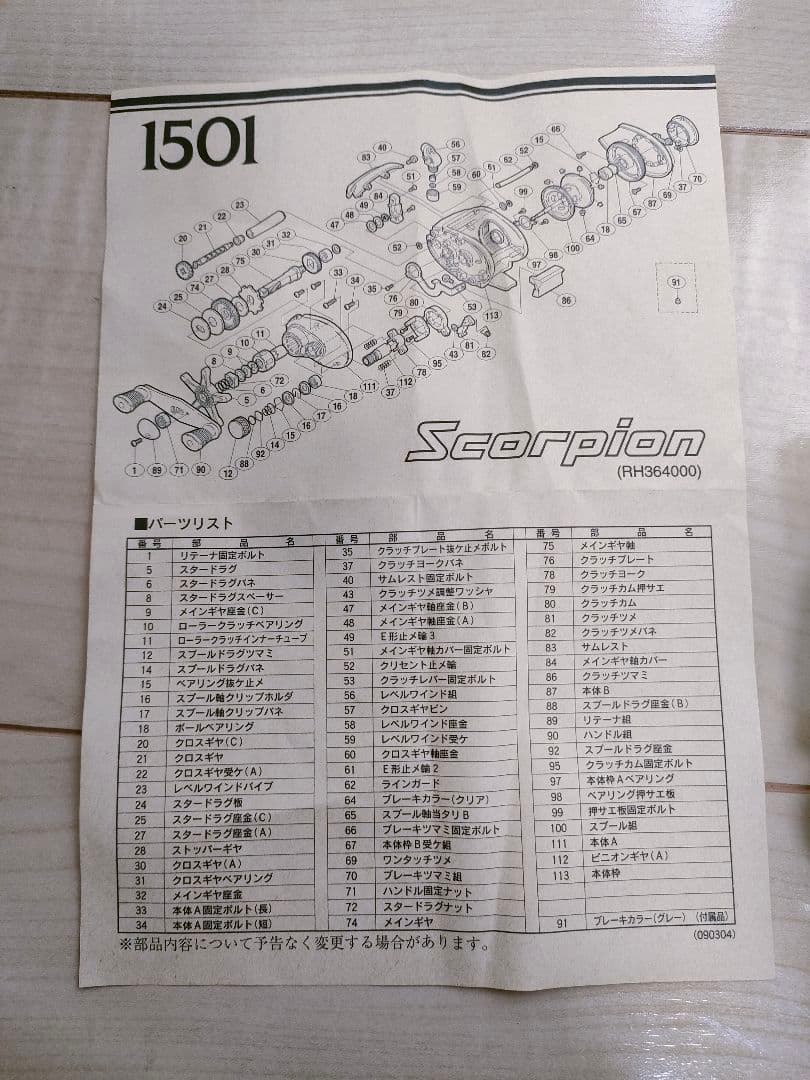 1501
Scorpion
(RH364000)
■パーツリスト
番号 部品名
1 リテーナ固定ボルト
5 スタードラグ
6 スタードラグバネ
8 スタードラグスペーサー
9 メインギヤ座金(C)
10 ローラークラッチベアリング
11 ローラークラッチインナーチューブ
12 スプールドラグツマミ
14 スプールドラグバネ
15 ベアリング抜ケ止メ
16 スプール軸クリップホルダ
17 スプール軸クリップバネ
18 ボールベアリング
20 クロスギヤ(C)
21 クロスギヤ
22 クロスギヤ受ケ(A)
23 レベルワインドパイプ
24 スタードラグ板
25 スタードラグ座金(C)
27 スタードラグ座金(A)
28 ストッパーギヤ
30 クロスギヤ(A)
31 クロスギヤベアリング
32 メインギヤ座金
33 本体A固定ボルト(長)
34 本体A固定ボルト(短)
番号 部品名
35 クラッチプレート抜ケ止メボルト
37 クラッチヨークバネ
40 サムレスト固定ボルト
43 クラッチツメ調整ワッシャ
47 メインギヤ軸座金(B)
48 メインギヤ軸座金(A)
49 E形止メ輪3
51 メインギヤ軸カバー固定ボルト
52 クリセント止メ輪
53 クラッチレバー固定ボルト
56 レベルワインド組
57 クロスギヤピン
58 レベルワインド座金
59 レベルワインド受ケ
60 クロスギヤ軸座金
61 E形止メ輪2
62 ラインガード
64 ブレーキカラー(クリア)
65 スプール軸当タリB
66 ブレーキツマミ固定ボルト
67 本体枠B受ケ組
69 ワンタッチツメ
70 ブレーキツマミ組
71 ハンドル固定ナット
72 スタードラグナット
74 メインギヤ
番号 部品名
75 メインギヤ軸
76 クラッチプレート
78 クラッチヨーク
79 クラッチカム押サエ
80 クラッチカム
81 クラッチツメ
82 クラッチツメバネ
83 サムレスト
84 メインギヤ軸カバー
86 クラッチツマミ
87 本体B
88 スプールドラグ座金(B)
89 リテーナ組
90 ハンドル組
92 スプールドラグ座金
95 クラッチカム固定ボルト
97 本体枠Aベアリング
98 ベアリング押サエ板
99 押サエ板固定ボルト
100 スプール組
111 本体A
112 ピニオンギヤ(A)
113 本体枠
91 ブレーキカラー(グレー) (付属品)
※部品内容について予告なく変更する場合があります。
(090304)